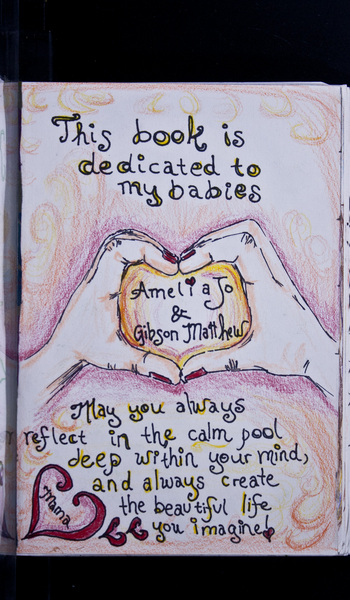 This book is
dedicated to
my babies
Amelia Jo
&
Gibson Matthew
May you always
reflect in the calm pool
deep within your mind,
and always create
the beautiful life
you imagine!
Mama